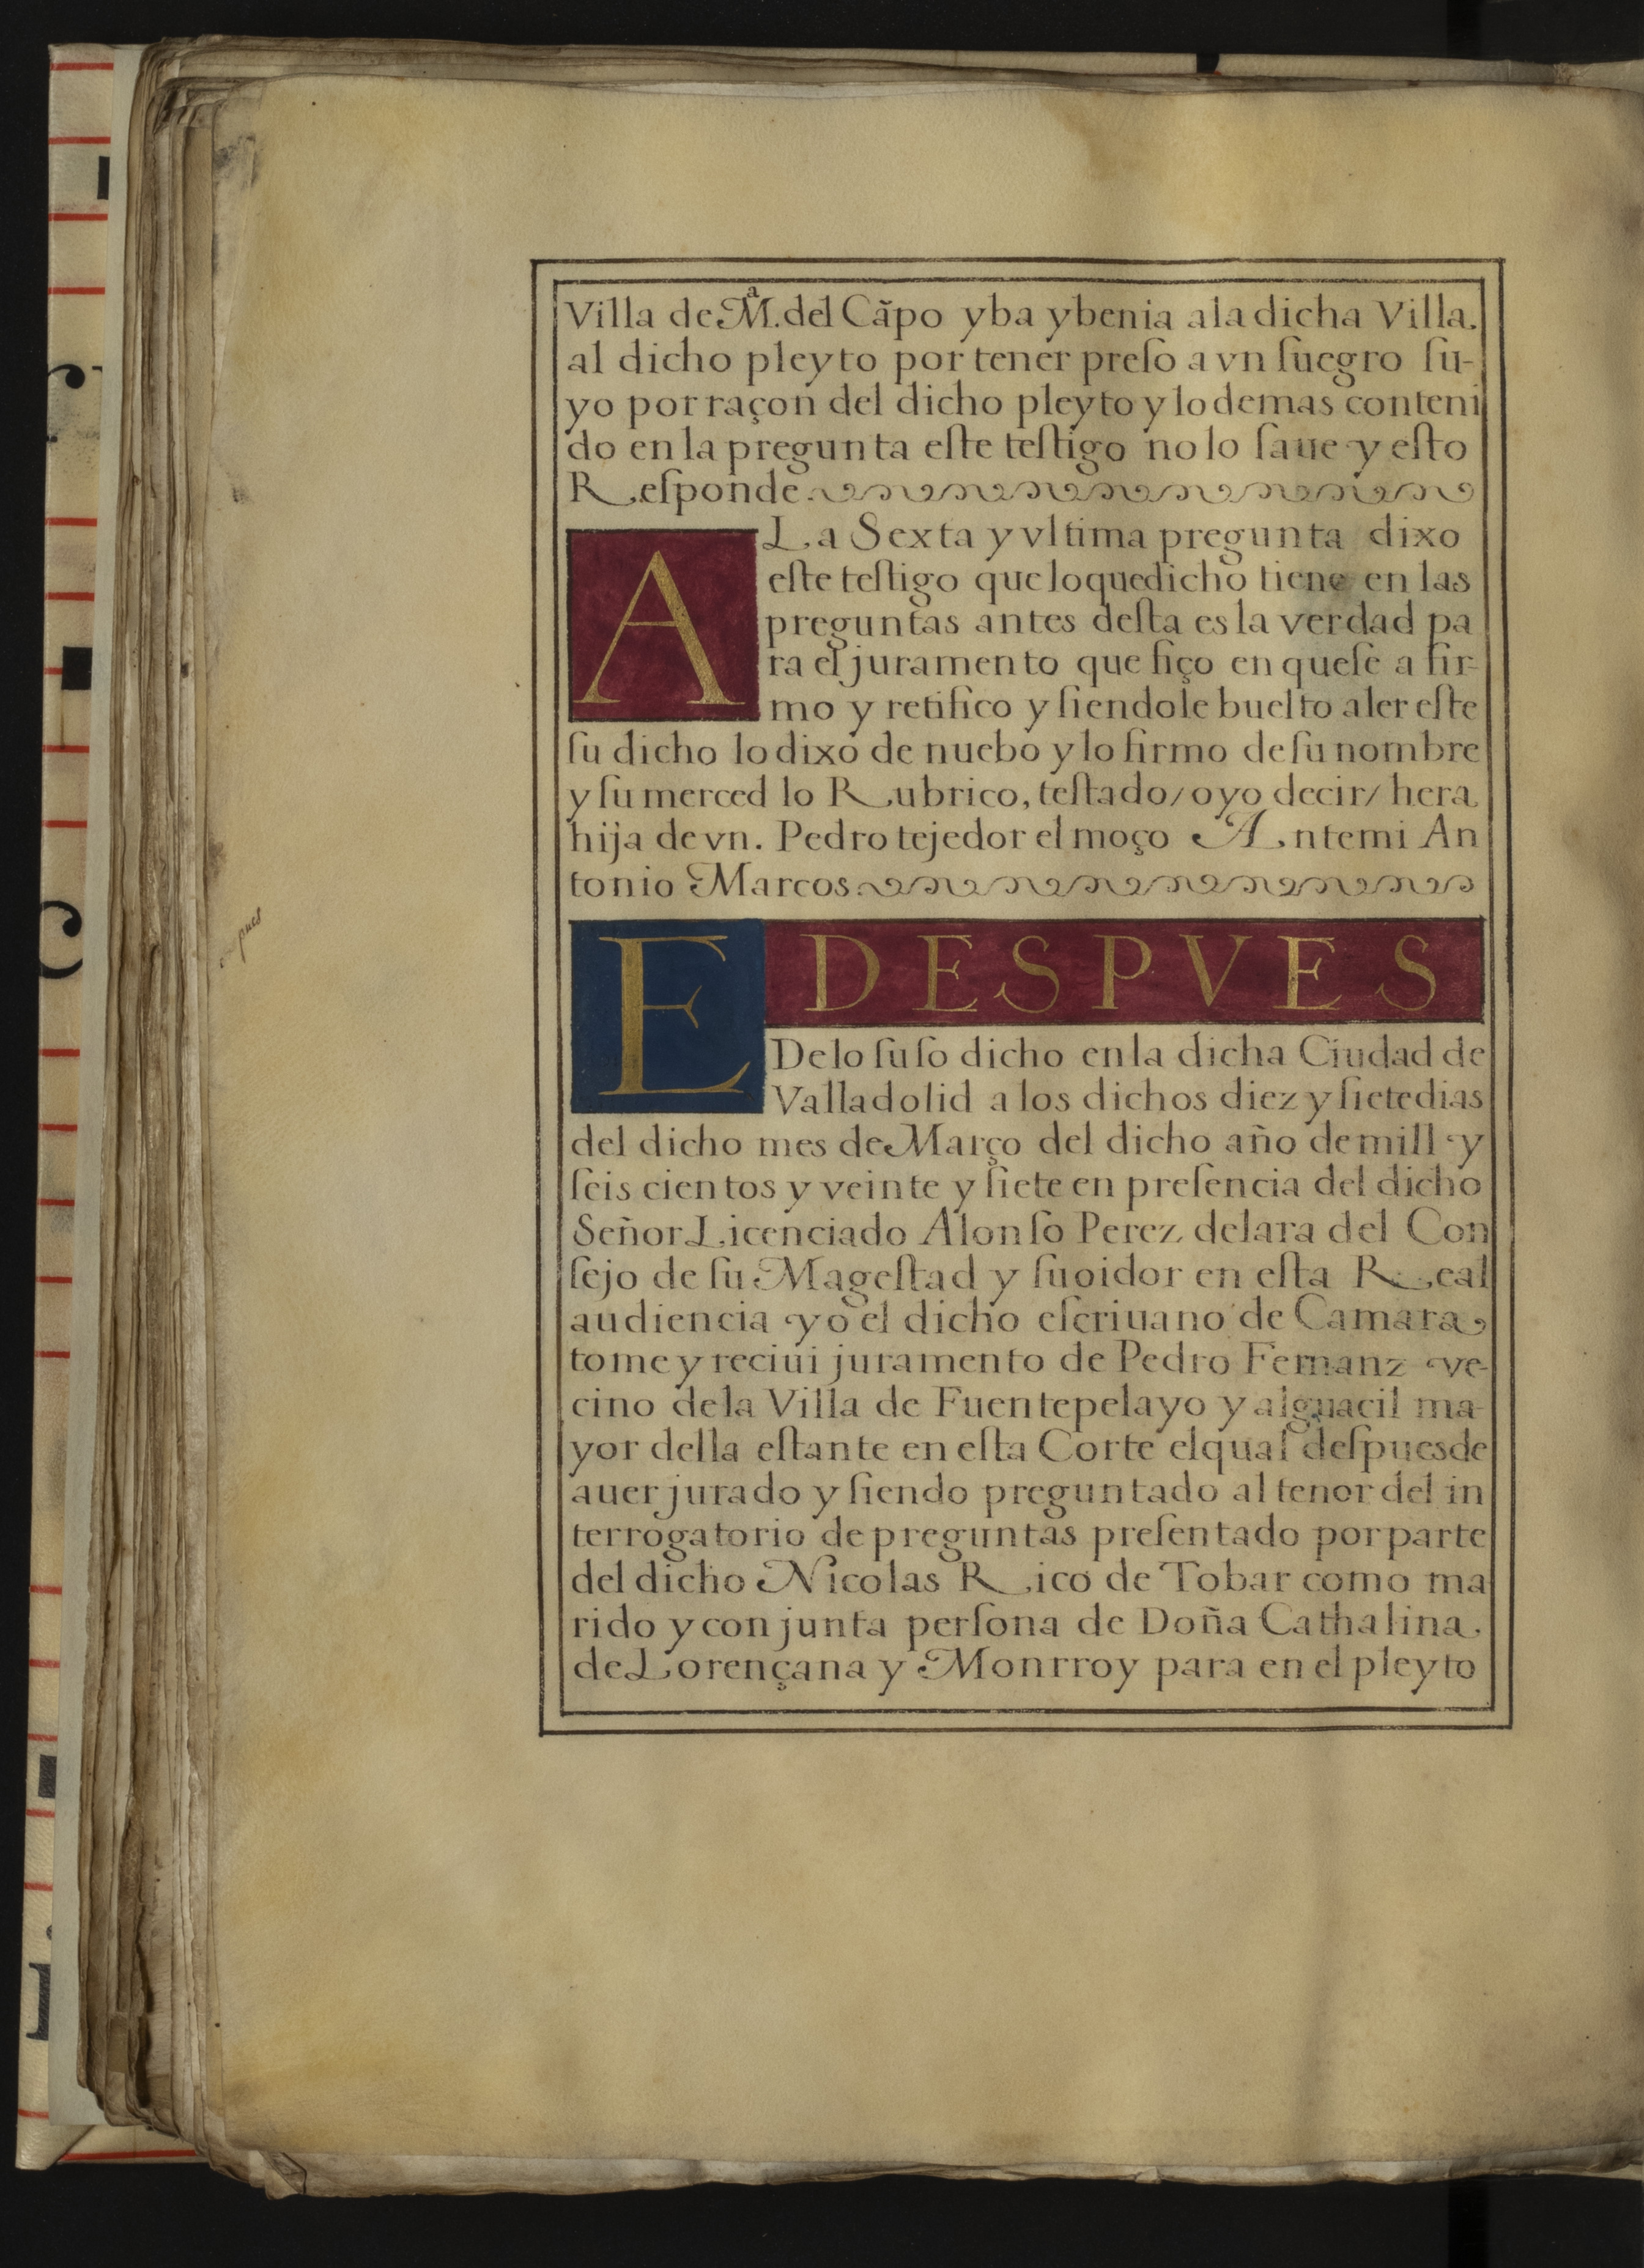 Villa de Mª. del Cãpo yba ybenia ala dicha Villa.
al dicho pleyto por tener preſo a vn ſuegro ſu-
yo por raçon del dicho pleyto y lo demas conteni
do en la pregunta eſte teſtigo no lo ſaue y eſto
Reſponde.
A La Sexta y vltima pregunta dixo
eſte teſtigo que loquedicho tiene en las
preguntas antes deſta es la verdad pa
ra el juramento que fiço en queſe a fir-
mo y retifico y ſiendole buelto aler eſte
ſu dicho lo dixo de nuebo y lo firmo de ſu nombre
y ſu merced lo Rubrico, teſtado/ oyo decir/ hera
hija de vn. Pedro tejedor el moço Antemi An
tonio Marcos
pues
E DESPVES
De lo ſuſo dicho en la dicha Ciudad de
Valladolid a los dichos diez y ſietedias
del dicho mes de Março del dicho año de mill y
ſeis cientos y veinte y ſiete en preſencia del dicho
Señor Licenciado Alonſo Perez delara del Con
ſejo de ſu Mageſtad y ſuoidor en eſta Real
audiencia yo el dicho eſcriuano de Camara
tome y reciui juramento de Pedro Fernanz ve-
cino dela Villa de Fuentepelayo y alguacil ma-
yor della eſtante en eſta Corte elqual deſpuesde
auer jurado y ſiendo preguntado al tenor del in
terrogatorio de preguntas preſentado por parte
del dicho Nicolas Rico de Tobar como ma
rido y con junta perſona de Doña Cathalina.
de Lorençana y Monrroy para en el pleyto